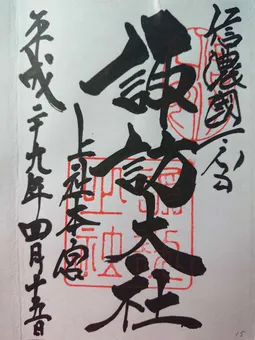 信濃國一之宮
諏訪大社
上社本宮
平成二十九年四月十五日